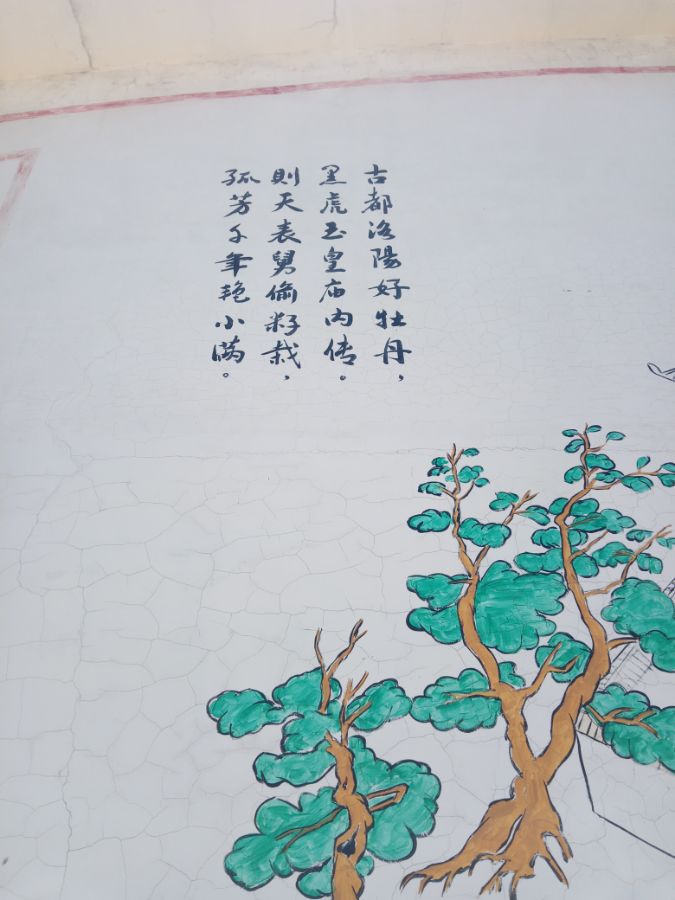 古都洛陽好牡丹，
黑虎玉皇庙内传。
則天表舅偷籽栽，
孤芳千年艳小满。